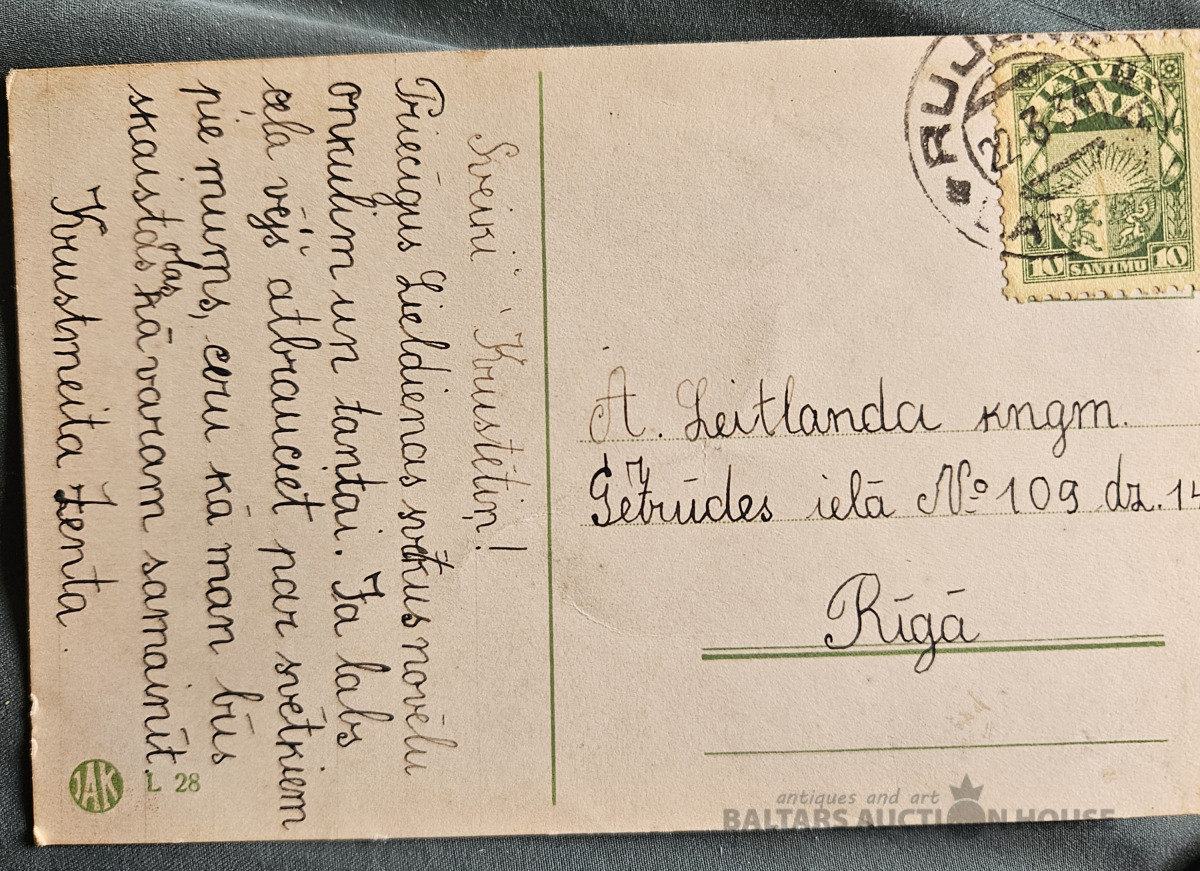 Sveiki Krustētiņ!
Priecīgus Lieldienas svētkus novēlu
onkuļim un taņtai. Ja labs
ceļa vējš atbrauciet par svētkiem
pie mums, ceru kā man būs
skaistas olas kā varam samainīt.
Krustmeita Zenta
JAK L 28
A. Leitlanda kngm.
Ģētrūdes ielā No 109 dz. 14
Rīgā
RUJ
22.3.3
LATVIJA
10 SANTIMU 10
antiques and art
BALTARS AUCTION HOUSE